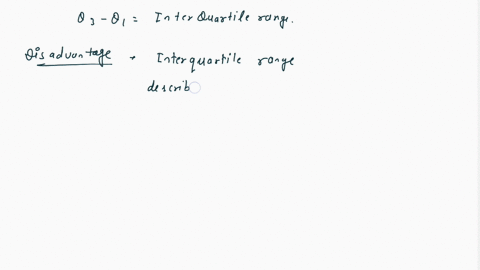 Q3 - Q1 = InterQuartile range.
Disadvantage • Interquartile range
describ